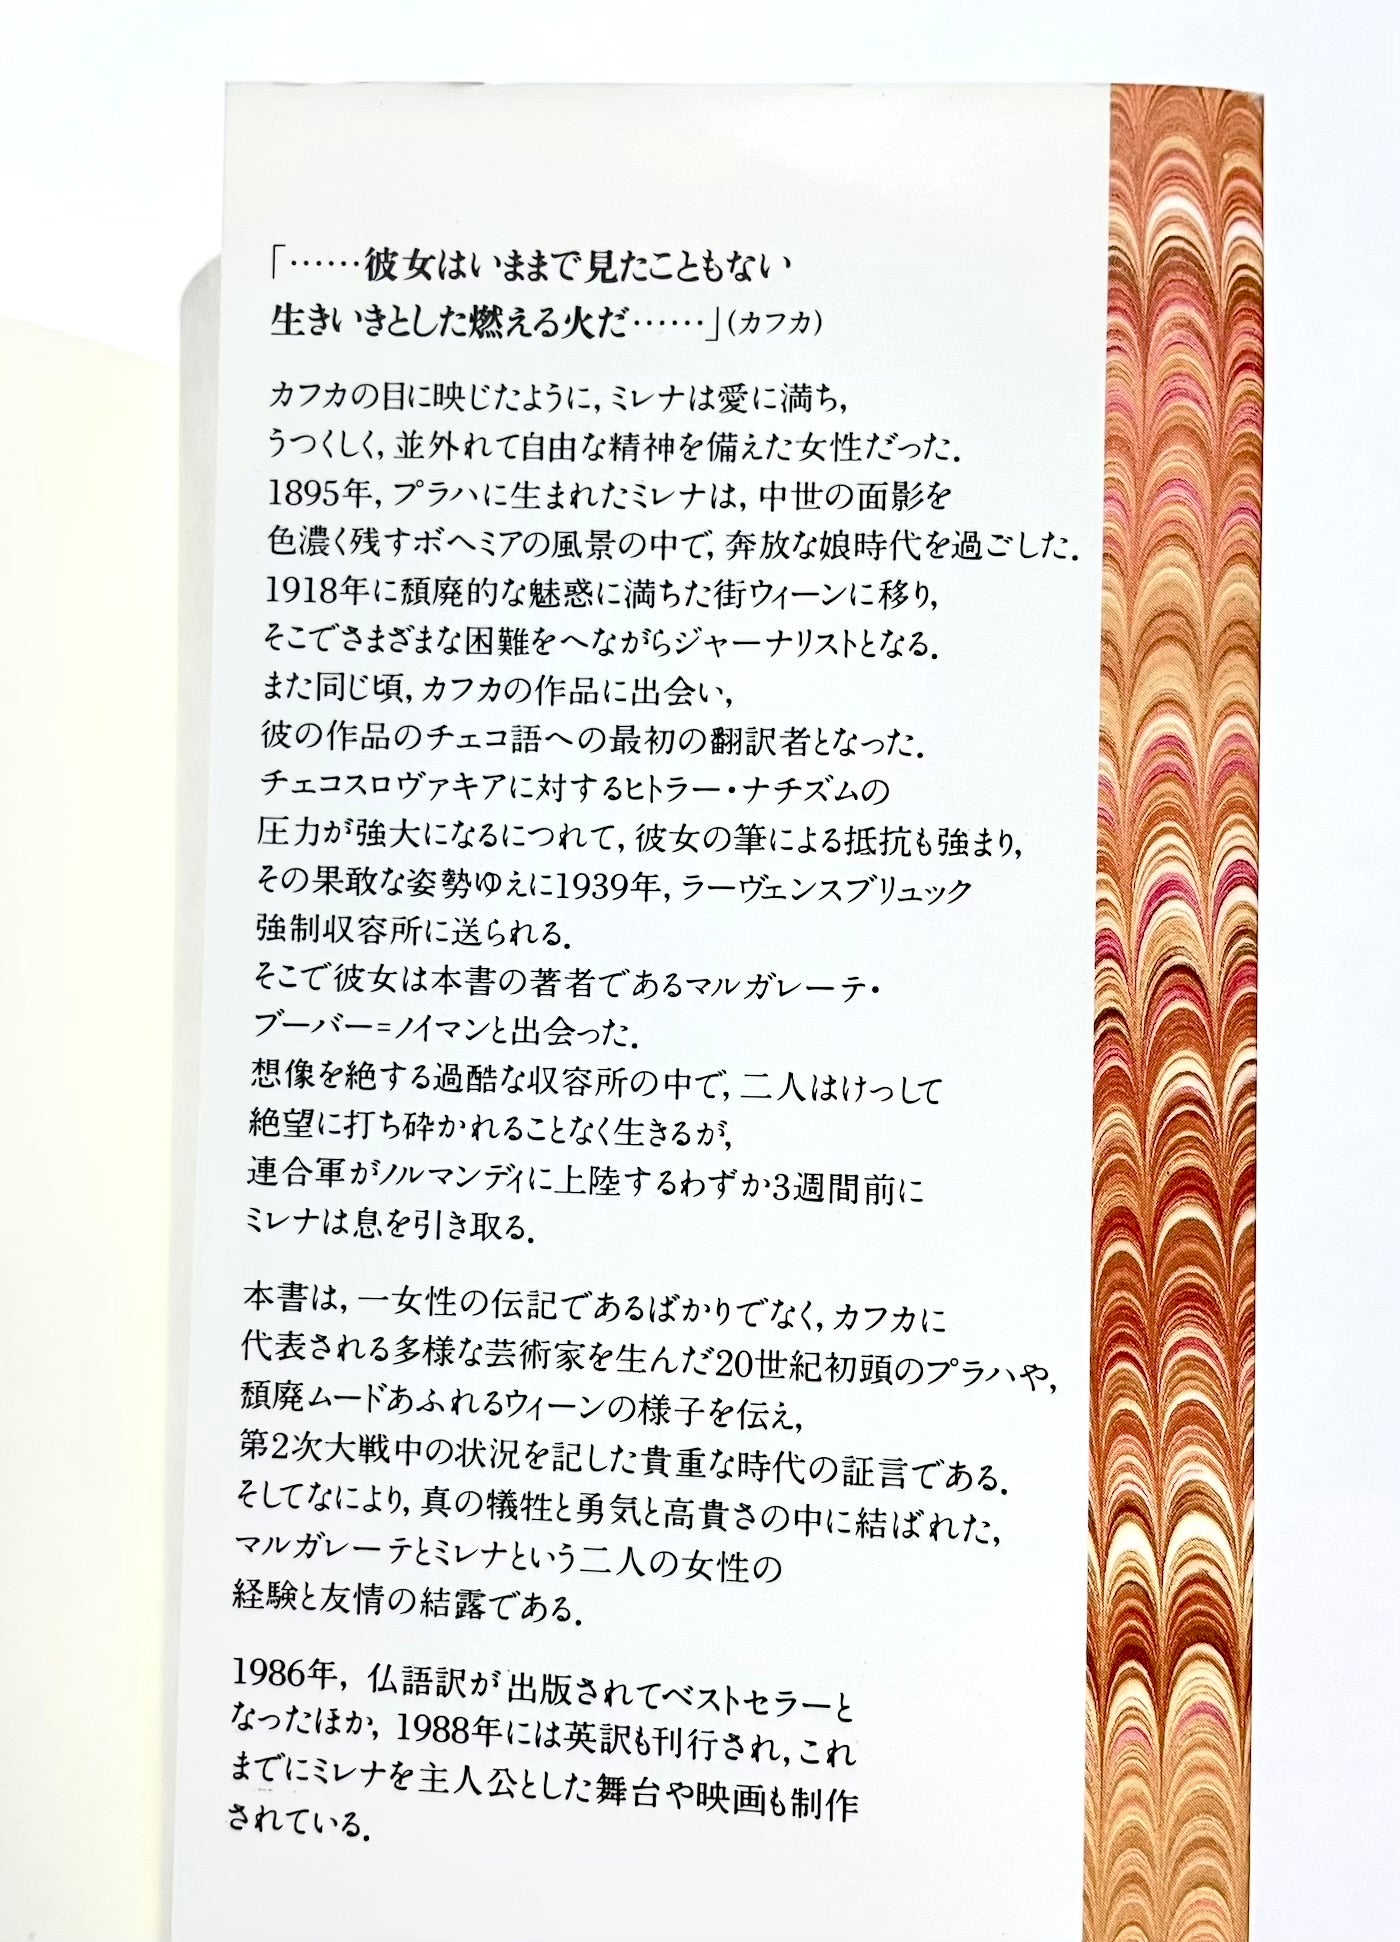 「……彼女はいままで見たこともない
生きいきとした燃える火だ……」(カフカ)
カフカの目に映じたように, ミレナは愛に満ち,
うつくしく, 並外れて自由な精神を備えた女性だった.
1895年, プラハに生まれたミレナは, 中世の面影を
色濃く残すボヘミアの風景の中で, 奔放な娘時代を過ごした.
1918年に頽廃的な魅惑に満ちた街ウィーンに移り,
そこでさまざまな困難をへながらジャーナリストとなる.
また同じ頃, カフカの作品に出会い,
彼の作品のチェコ語への最初の翻訳者となった.
チェコスロヴァキアに対するヒトラー・ナチズムの
圧力が強大になるにつれて, 彼女の筆による抵抗も強まり,
その果敢な姿勢ゆえに1939年, ラーヴェンスブリュック
強制収容所に送られる.
そこで彼女は本書の著者であるマルガレーテ・
ブーバー=ノイマンと出会った.
想像を絶する過酷な収容所の中で, 二人はけっして
絶望に打ち砕かれることなく生きるが,
連合軍がノルマンディに上陸するわずか3週間前に
ミレナは息を引き取る.
本書は, 一女性の伝記であるばかりでなく, カフカに
代表される多様な芸術家を生んだ20世紀初頭のプラハや,
頽廃ムードあふれるウィーンの様子を伝え,
第2次大戦中の状況を記した貴重な時代の証言である.
そしてなにより, 真の犠牲と勇気と高貴さの中に結ばれた,
マルガレーテとミレナという二人の女性の
経験と友情の結露である.
1986年, 仏語訳が出版されてベストセラーと
なったほか, 1988年には英訳も刊行され, これ
までにミレナを主人公とした舞台や映画も制作
されている.